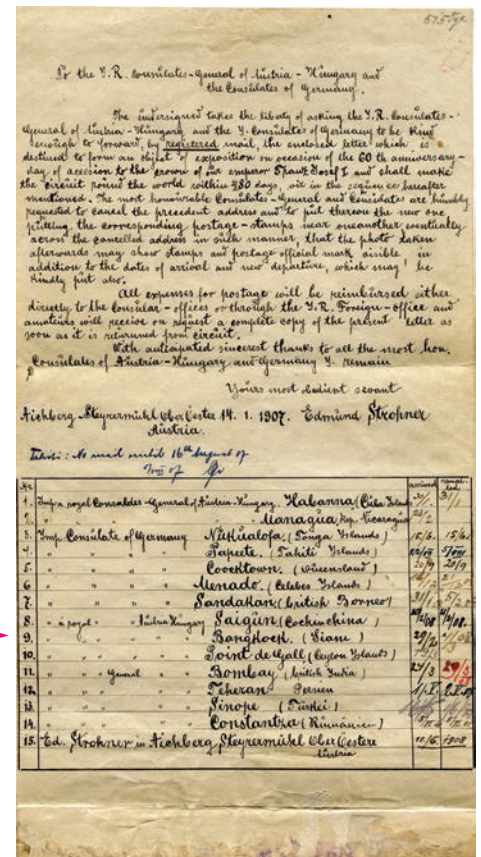 To the I.R. Consulates-General of Austria-Hungary and
the Consulates of Germany.
The undersigned takes the liberty of asking the I.R. Consulates-
General of Austria-Hungary, and the I. Consulates of Germany to be kind
enough to forward, by registered mail, the enclosed letter which is
destined to form an object of exposition on occasion of the 60th anniversary-
day of accession to the crown of our emperor Franz Josef I and shall make
the circuit round the world within 380 days, viz in the sequence hereafter
mentioned. The most honourable Consulates-General and Consulates are humbly
requested to cancel the precedent address and to put thereon the new one
putting the corresponding postage-stamps near oneanother eventually
across the cancelled address in such manner, that the photo taken
afterwards may show stamps and postage official mark visible, in
addition to the dates of arrival and new departure, which may be
kindly put also.
All expenses for postage will be reimbursed either
directly to the Consular-offices or through the I.R. Foreign-office and
amateurs will receive on request a complete copy of the present letter as
soon as it is returned from circuit.
With anticipated sincerest thanks to all the most hon.
Consulates of Austria-Hungary and Germany I remain
Yours most obedient servant
Aichberg-Steyrermühl Ober Oester 14. 1. 1907. Edmund Strohner
Austria.
Tahiti: No mail until 16th August
Nr. arrived
1. Imp. a. royal Consulates-General of Austria-Hungary, Habanna, (Cuba Islands 31/1
2. " " Managua, Rep. Nicaragua
3. Imp. Consulate of Germany Nukualofa, (Tonga Islands) 15/6. 15/6.
4. " " " " Papeete. (Tahiti Islands)
5. " " " " Coocktown. (Queensland) 20/9 20/9
6. " " " " Menado. (Celebes Islands)
7. " " " " Sandakan, (british Borneo) 31/1
8. " a. royal " " Austria Hungary Saigun, (Cochinchina)
9. " " " " Bangkock. (Siam)
10. " " " " Point de Gall, (Ceylon Islands)
11. " " " General " Bombay, (british India)
12. " " " " Teheran Persien
13. " " " " Sinope (Türkei)
14. " " " " Constantza (Rumänien)
15. Ed. Strohner in Aichberg, Steyrermühl Ober Oestere 1908
Austria